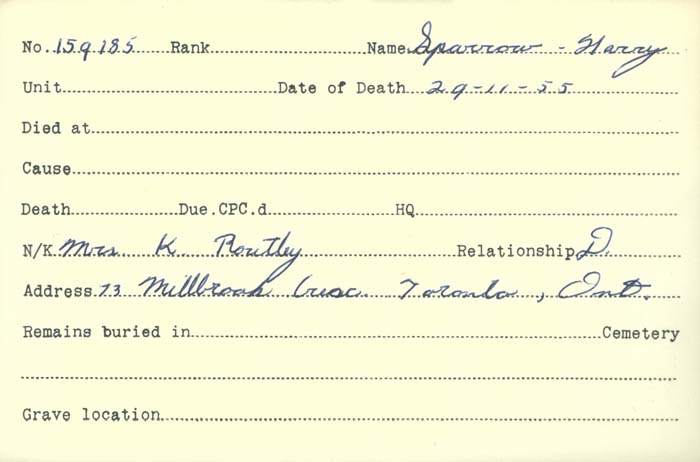 No. 159185 Rank Name Sparrow - Harry
Unit Date of Death 29-11-55
Died at
Cause
Death Due.CPC.d HQ
N/K Mrs K Routley Relationship D.
Address 73 Millbrook Cresc. Toronto, Ont.
Remains buried in Cemetery
Grave location